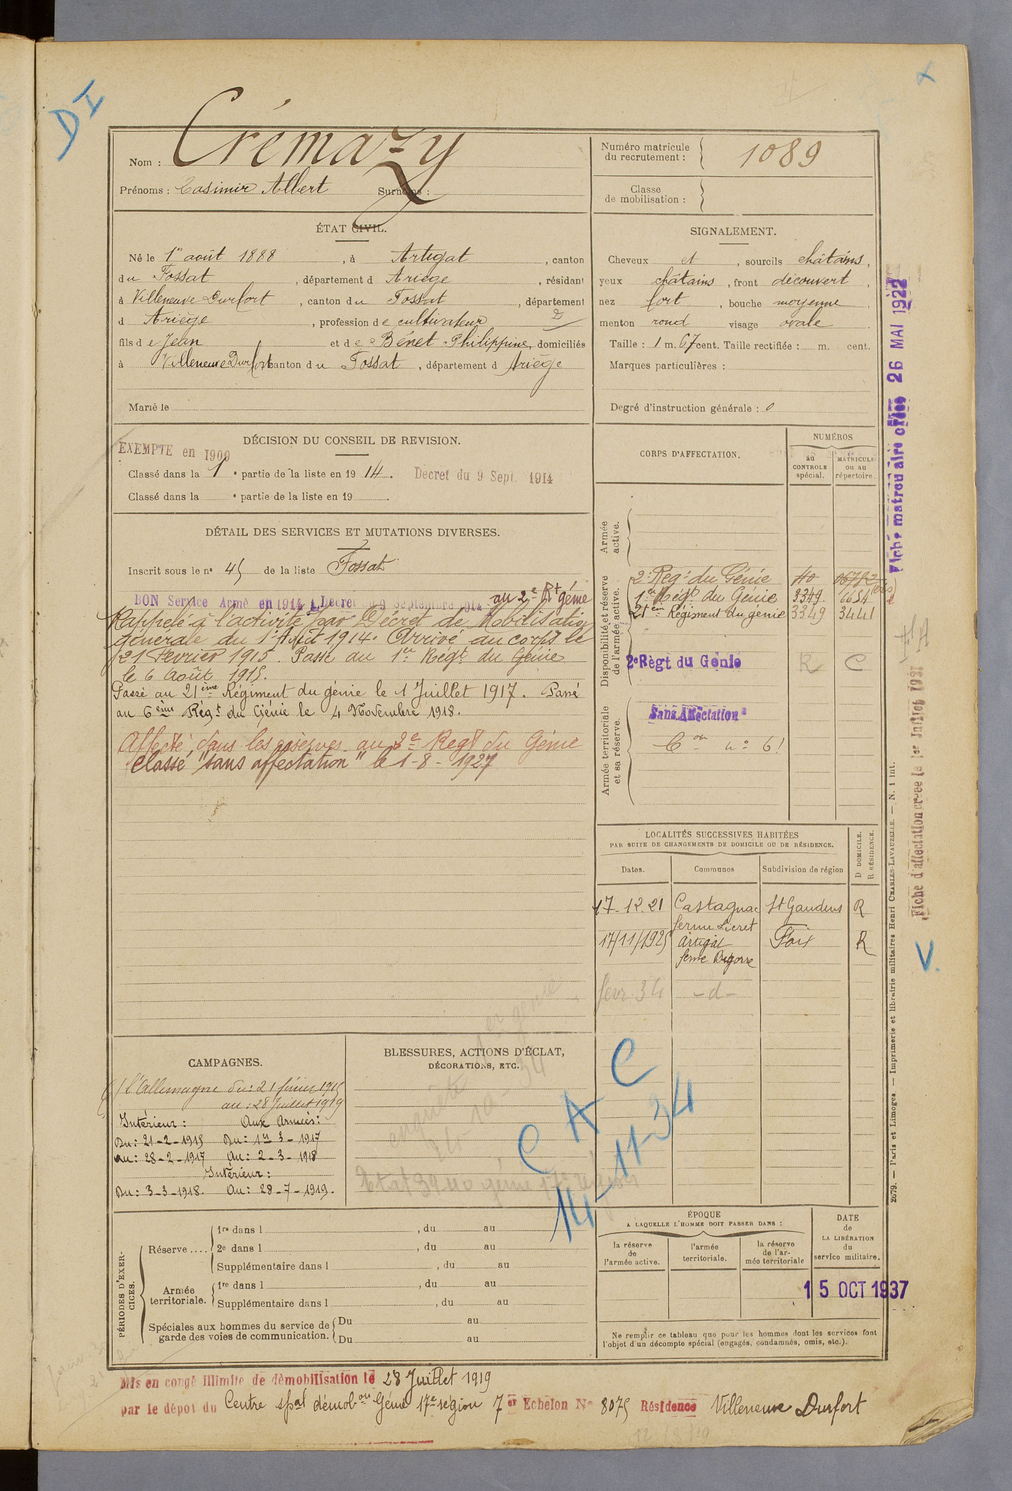 D I
Nom : Crémazy
Prénoms : Casimir Albert Surnoms :
Numéro matricule
du recrutement : 1089
Classe
de mobilisation :
ÉTAT CIVIL.
Né le 1er août 1888, à Artigat, canton
du Fossat, département d Ariège, résidant
à Villeneuve Durfort, canton du Fossat, département
d Ariège, profession de cultivateur
fils de Jean et de Bénet Philippine, domiciliés
à Villeneuve Durfort canton du Fossat, département d Ariège
Marié le
SIGNALEMENT.
Cheveux et, sourcils châtains,
yeux châtains, front découvert,
nez fort, bouche moyenne
menton rond visage ovale
Taille : 1 m. 67 cent. Taille rectifiée : m. cent.
Marques particulières :
Degré d'instruction générale : 0
DÉCISION DU CONSEIL DE REVISION.
EXEMPTÉ en 1909
Classé dans la 1e partie de la liste en 1914. Décret du 9 Sept. 1914
Classé dans la e partie de la liste en 19
DÉTAIL DES SERVICES ET MUTATIONS DIVERSES.
Inscrit sous le no 45 de la liste Fossat
BON Service Armé en 1914 Décret 9 septembre 1914 au 2e Rt génie
Rappelé à l'activité par Décret de Mobilisation
générale du 1er Août 1914. Arrivé au corps le
21 Février 1915. Passé au 1er Régt du Génie
le 6 Août 1915.
Passé au 21ème Régiment du génie le 1 Juillet 1917. Passé
au 6ème Régt du Génie le 4 Novembre 1918.
Affecté dans les réserves au 2e Régt du Génie
Classé "sans affectation" le 1-8-1927
CORPS D'AFFECTATION.
NUMÉROS
AU CONTROLE spécial.
MATRICULE OU AU répertoire.
Armée active.
Disponibilité et réserve de l'armée active.
2e Régt du Génie 40
1er Régt du Génie 3349
21em Régiment du génie 3349 34441
2e Règt du Génie R C
Armée territoriale et sa réserve.
Sans Affectation
LOCALITÉS SUCCESSIVES HABITÉES
PAR SUITE DE CHANGEMENTS DE DOMICILE OU DE RÉSIDENCE.
Dates. Communes Subdivision de région D DOMICILE. R RÉSIDENCE.
17-12-21 Castagnac St Gaudens R
ferme
17/11/1925 Artigat Foix R
ferme
fevr. 34 -d-
CAMPAGNES.
c/ l'Allemagne du : 21 février 1915
au : 28 Juillet 1919
Intérieur : Aux Armées :
Du : 21-2-1915 Du : 1er 3-1917
au : 28-2-1917 au : 2-3-1918
Intérieur :
Du : 3-3-1918. au : 28-7-1919.
BLESSURES, ACTIONS D'ÉCLAT,
DÉCORATIONS, ETC.
C A C
14-11-34
PÉRIODES D'EXERCICES.
Réserve.... 1re dans l , du au
2e dans l , du au
Supplémentaire dans l , du au
Armée territoriale. 1re dans l , du au
Supplémentaire dans l , du au
Spéciales aux hommes du service de garde des voies de communication. Du au
Du au
ÉPOQUE
A LAQUELLE L'HOMME DOIT PASSER DANS :
la réserve de l'armée active.
l'armée territoriale.
la réserve de l'armée territoriale
DATE de LA LIBÉRATION du service militaire.
15 OCT 1937
Ne remplir ce tableau que pour les hommes dont les services font
l'objet d'un décompte spécial (engagés, condamnés, omis, etc.).
Mis en congé illimité de démobilisation le 28 Juillet 1919
par le dépôt du Centre spal démobon Génie 17e région 7er Echelon No 8075 Résidence Villeneuve Durfort
Fiche matriculaire créée 26 MAI 1922
Fiche d'affectation créée le 1er Juillet 1931
V.
2679. — Paris et Limoges. — Imprimerie et librairie militaires Henri CHARLES-LAVAUZELLE. — N. 1 int.